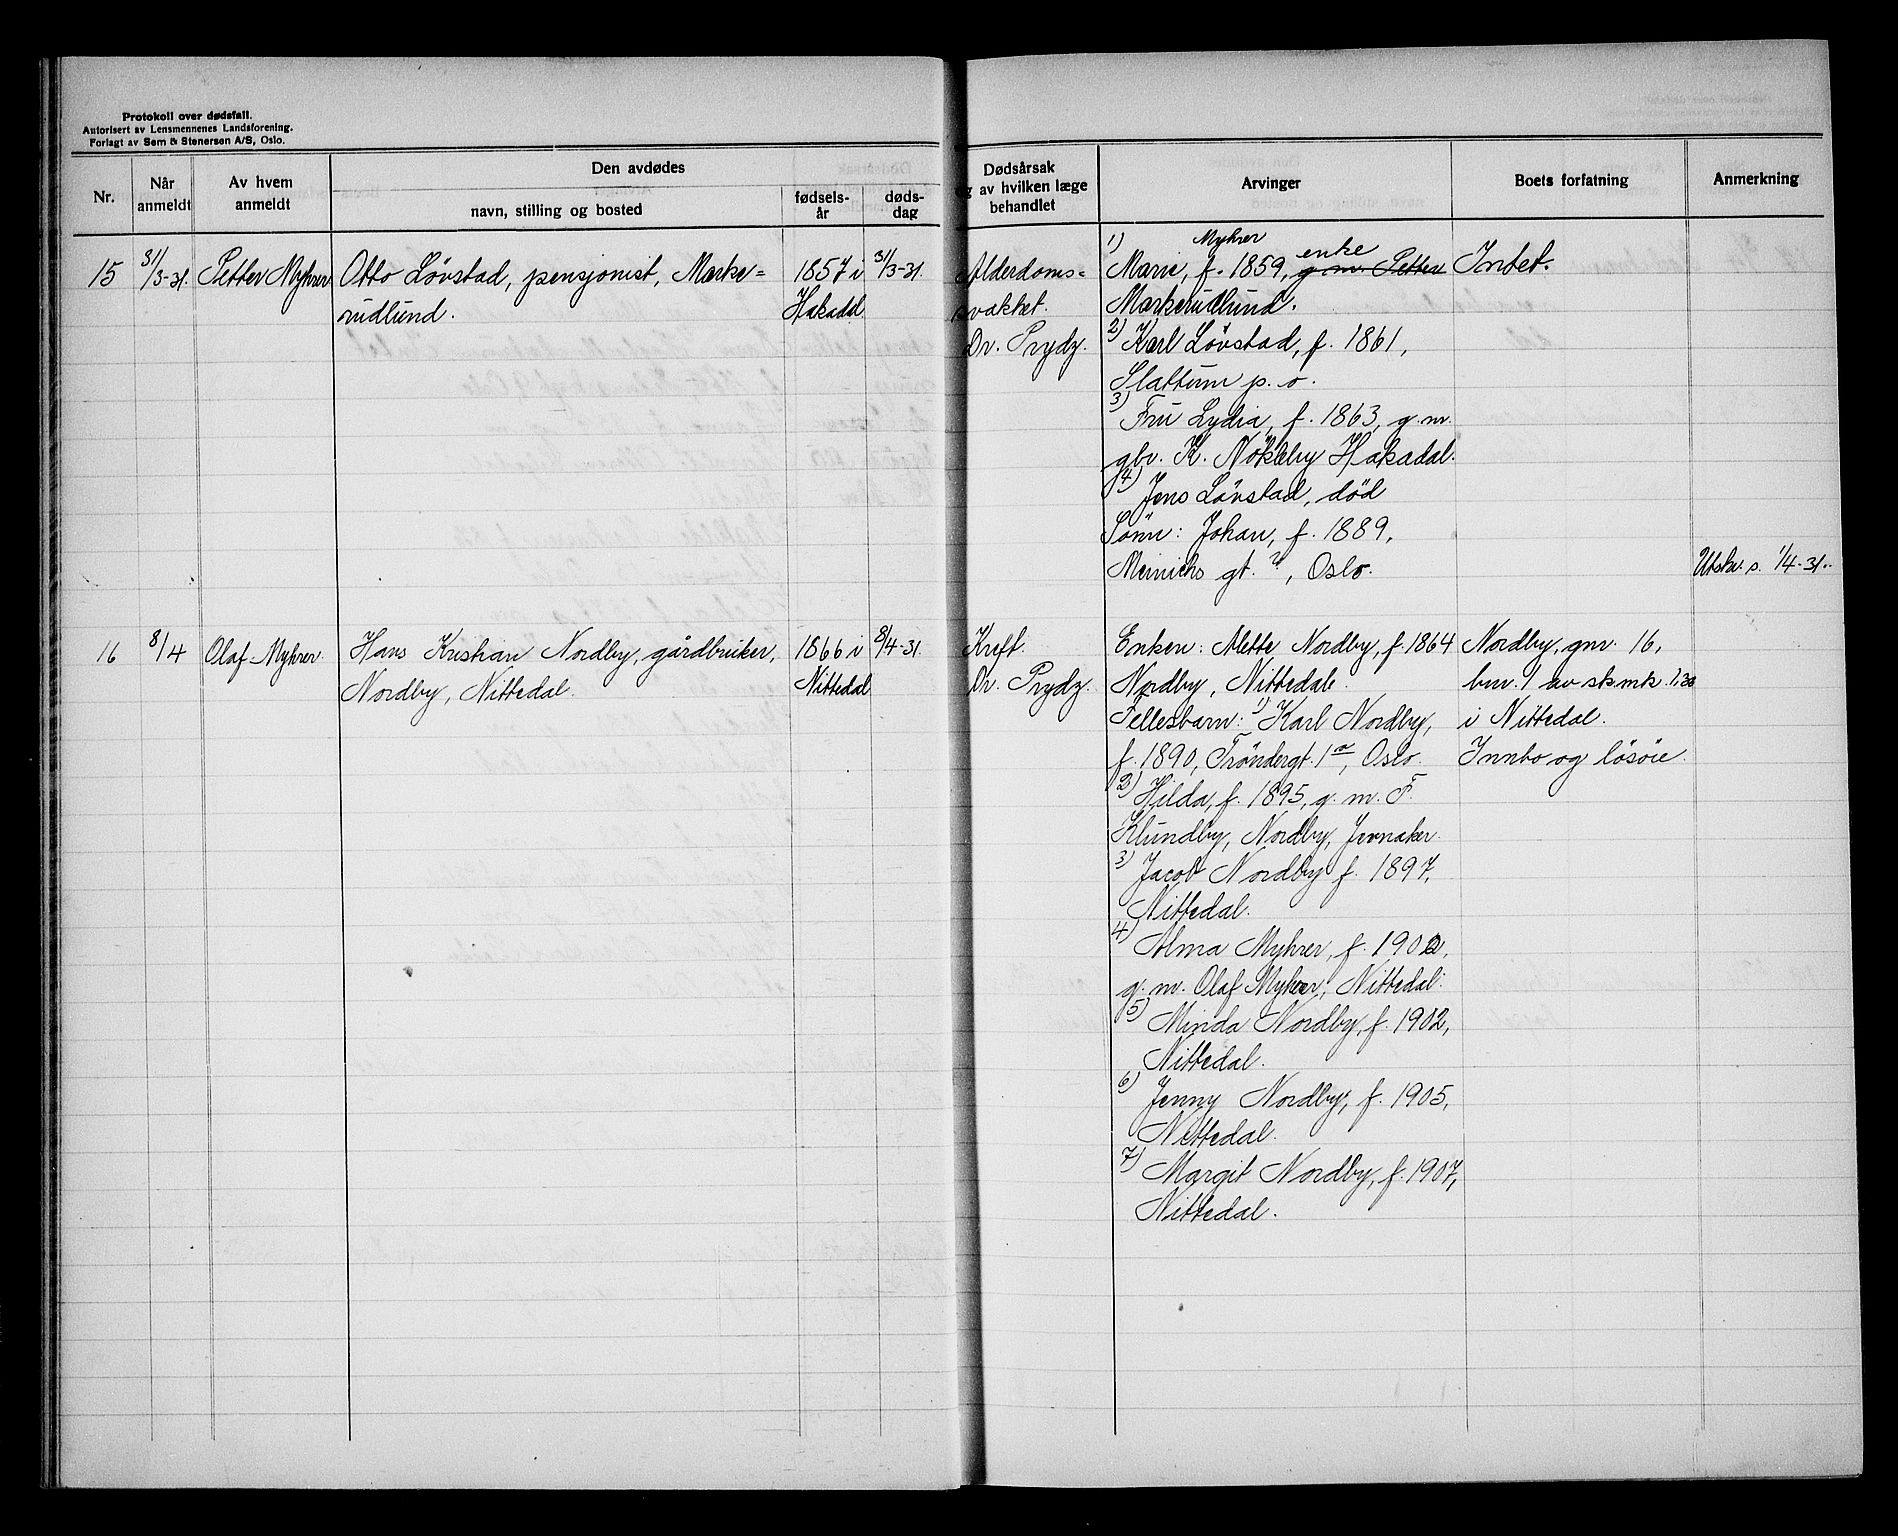 Protokoll over dødsfall.
Autorisert av Lensmennenes Landsforening.
Forlagt av Sem & Stenersen A/S, Oslo.
Nr.
Når anmeldt
Av hvem anmeldt
Den avdødes
navn, stilling og bosted
fødsels-år
døds-dag
Dødsårsak
og av hvilken læge
behandlet
Arvinger
Boets forfatning
Anmerkning
15
31/3-31.
Petter Myhrer
Otto Lövstad, pensjonist, Marke=
rudlund.
1857 i
Hakadal
31/3-31.
Alderdoms=
svakhet.
Dr. Prydz.
Myhrer
1) Marie, f. 1859, g. m. Petter enke
Markerudlund.
2) Karl Lövstad, f. 1861,
Slattum p. o.
3) Fru Lydia, f. 1863, g. m.
gbr. K. Nökleby Hakadal.
4) Jens Lövstad, död
Sönn: Johan, f. 1889,
Meinichs gt. ?, Oslo.
Intet.
Utskr. s. 1/4-31.
16
8/4
Olaf Myhrer
Hans Kristian Nordby, gårdbruker,
Nordby, Nittedal.
1866 i
Nittedal
8/4-31.
Kreft.
Dr. Prydz.
Enken: Alette Nordby, f. 1864
Nordby, Nittedal.
Fellesbarn: 1) Karl Nordby,
f. 1890, Tröndergt. 1a, Oslo.
2) Hilda, f. 1895, g. m. F.
Klundby, Nordby, Jevnaker.
3) Jacob Nordby f. 1897,
Nittedal.
4) Alma Myhrer, f. 1900,
g. m. Olaf Myhrer, Nittedal.
5) Minda Nordby, f. 1902,
Nittedal.
6) Jenny Nordby, f. 1905,
Nittedal.
7) Margit Nordby, f. 1907,
Nittedal.
Nordby, gnr. 16,
bnr. 1 av sk.mk.
i Nittedal.
Innbo og lösöie.